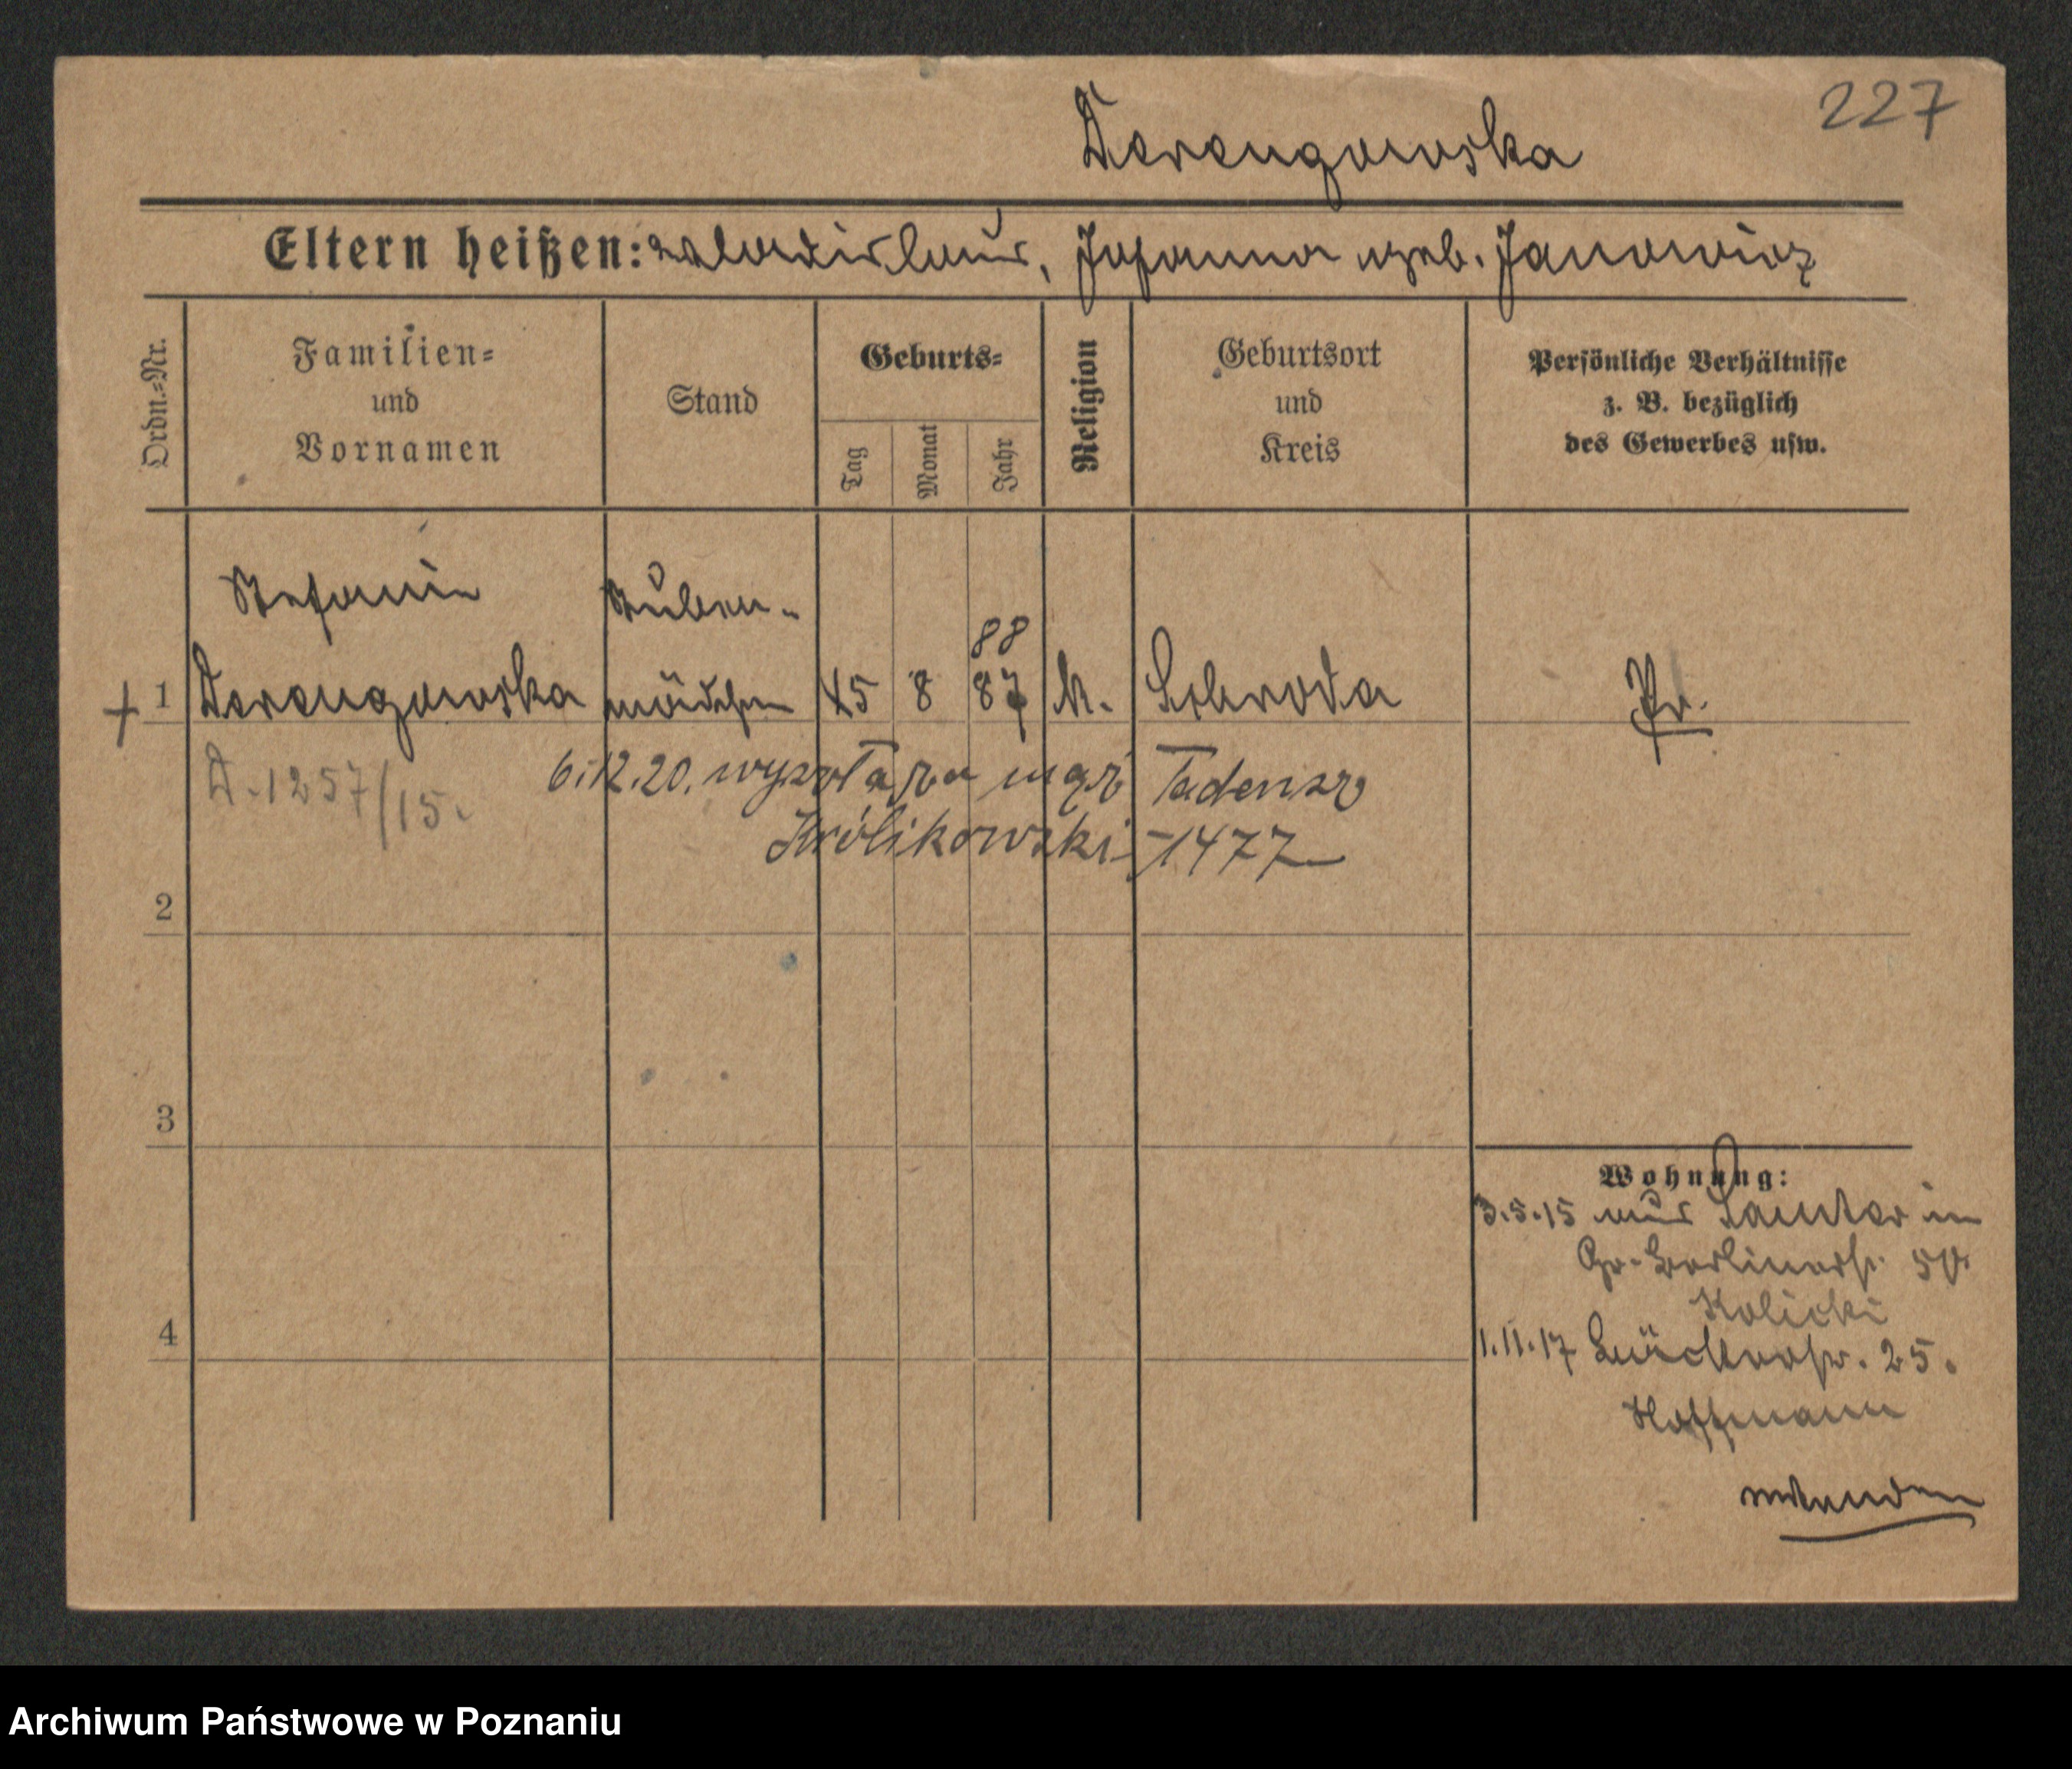 227
Derengowska
Eltern heißen: Wladislaus, Johanna geb. Janowicz
Ordn.=Nr.
Familien=
und
Vornamen
Stand
Geburts=
Tag
Monat
Jahr
Religion
Geburtsort
und
Kreis
Persönliche Verhältnisse
z. B. bezüglich
des Gewerbes usw.
Stefanie Stuben-
88
+ 1 Derengowska mädchen 8 87 k. Schroda Pr.
A. 1257/15.
6.12.20. wyszła za mąż Tadeusz
Królikowski - 1477
2
3
4
Wohnung:
3.5.15 aus Samter in
Gr. Berlinerstr.
Kolicki
1.11.17 25.
Hoffmann
Archiwum Państwowe w Poznaniu